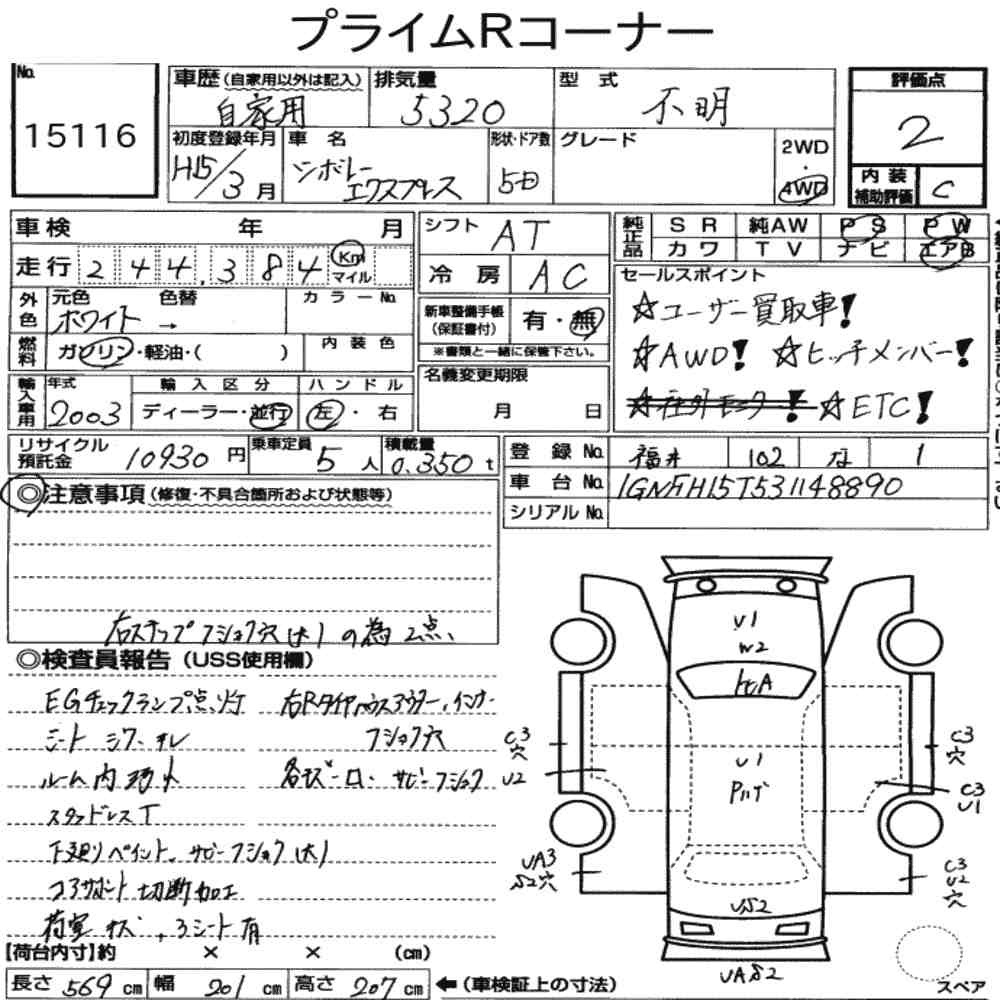 プライムRコーナー
No. 15116
車歴(自家用以外は記入) 自家用
排気量 5320
型式 不明
評価点 2
初度登録年月 H15/3月
車名 シボレー エクスプレス
形状・ドア数 5D
グレード
2WD・4WD
内装補助評価 C
車検 年 月
走行 244,384 Km マイル
シフト AT
冷房 AC
純正品 SR 純AW PS PW
カワ TV ナビ エアB
外色 元色 ホワイト → 色替
カラーNo.
燃料 ガソリン・軽油・( )
内装色
新車整備手帳(保証書付) 有・無
※書類と一緒に保管下さい。
セールスポイント
☆ユーザー買取車!
☆AWD! ☆ヒッチメンバー!
☆ETC!
輸入車用 年式 2003
輸入区分 ディーラー・並行
ハンドル 左・右
名義変更期限 月 日
リサイクル預託金 10930円
乗車定員 5人
積載量 0.350t
登録No. 福井 102 な 1
車台No. 1GNFH15T531148890
シリアルNo.
◎注意事項(修復・不具合箇所および状態等)
右ステップフショク穴(大)の為2点、
◎検査員報告(USS使用欄)
EGチェックランプ点灯 右Rタイヤハウスアウター、インナー
シート シワ・スレ フショク穴
ルーム内
スタッドレスT
下廻りペイント、サビ・フショク(大)
コアサポート切断加工
荷室キズ、3シート有
U1
W2
U1
C3
穴
U2
UA3
S2穴
C3
穴
C3
U1
C3
U2
穴
US2
UAS2
スペア
【荷台内寸】約 × × (cm)
長さ 569cm 幅 201cm 高さ 207cm ←(車検証上の寸法)